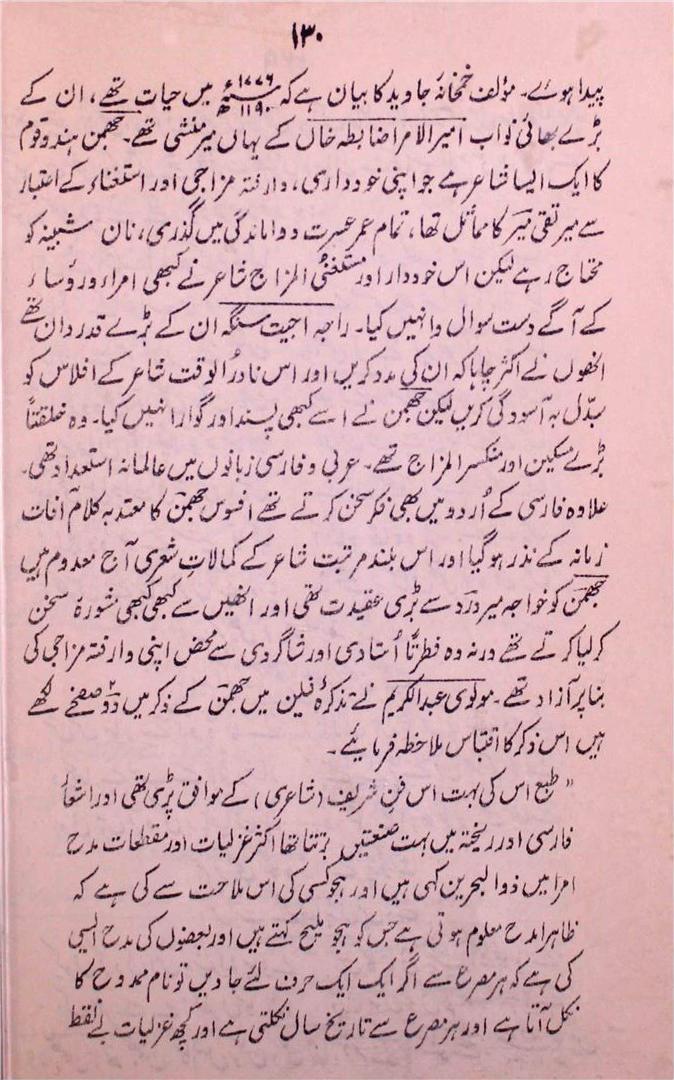 ۱۳۰
پیدا ہوئے۔ مؤلف خمخانۂ جاوید کا بیان ہے کہ ۱۷۷۶ء ۱۱۹۰ھ میں حیات تھے، ان کے
بڑے بھائی نواب امیر الامرا ضابطہ خاں کے یہاں میر منشی تھے۔ جھمن ہندو قوم
کا ایک ایسا شاعر ہے جو اپنی خودداری، وارفتہ مزاجی اور استغناء کے اعتبار
سے میر تقی میر کا مماثل تھا، تمام عمر عسرت و واماندگی میں گذری، نان شبینہ کو
محتاج رہے لیکن اس خوددار اور مستغنی المزاج شاعر نے کبھی امراء و روساء
کے آگے دست سوال وا نہیں کیا۔ راجہ اجیت سنگھ ان کے بڑے قدردان تھے
انھوں نے اکثر چاہا کہ ان کی مدد کریں اور اس نادر الوقت شاعر کے افلاس کو
مبدّل بہ آسودگی کریں لیکن جھمن نے اسے کبھی پسند اور گوارا نہیں کیا۔ وہ خلقتاً
بڑے مسکین اور منکسر المزاج تھے۔ عربی و فارسی زبانوں میں عالمانہ استعداد تھی۔
علاوہ فارسی کے اُردو میں بھی فکر سخن کرتے تھے افسوس جھمن کا معتد بہ کلام آفات
زمانہ کے نذر ہو گیا اور اس بلند مرتبت شاعر کے کمالات شعری آج معدوم ہیں
جھمن کو خواجہ میر درد سے بڑی عقیدت تھی اور انھیں سے کبھی کبھی مشورۂ سخن
کر لیا کرتے تھے ورنہ وہ فطرتاً اُستادی اور شاگردی سے محض اپنی وارفتہ مزاجی کی
بنا پر آزاد تھے۔ مولوی عبدالکریم نے تذکرۂ فیلن میں جھمن کے ذکر میں دو ۲ صفحے لکھے
ہیں اس ذکر کا اقتباس ملاحظہ فرمایئے۔
"طبع اس کی بہت اس فن شریف (شاعری) کے موافق پڑی تھی اور اشعار
فارسی اور ریختہ میں بہت صنعتیں برتتا تھا اکثر غزلیات اور مقطعات مدح
امرا میں ذوالبحرین کہی ہیں اور ہجو کسی کی اس ملاحت سے کی ہے کہ
ظاہرا مدح معلوم ہوتی ہے جس کو ہجو ملیح کہتے ہیں اور بعضوں کی مدح ایسی
کی ہے کہ ہر مصرع سے اگر ایک ایک حرف لئے جاویں تو نام ممدوح کا
نکل آتا ہے اور ہر مصرع سے تاریخ سال نکلتی ہے اور کچھ غزلیات بے نقط